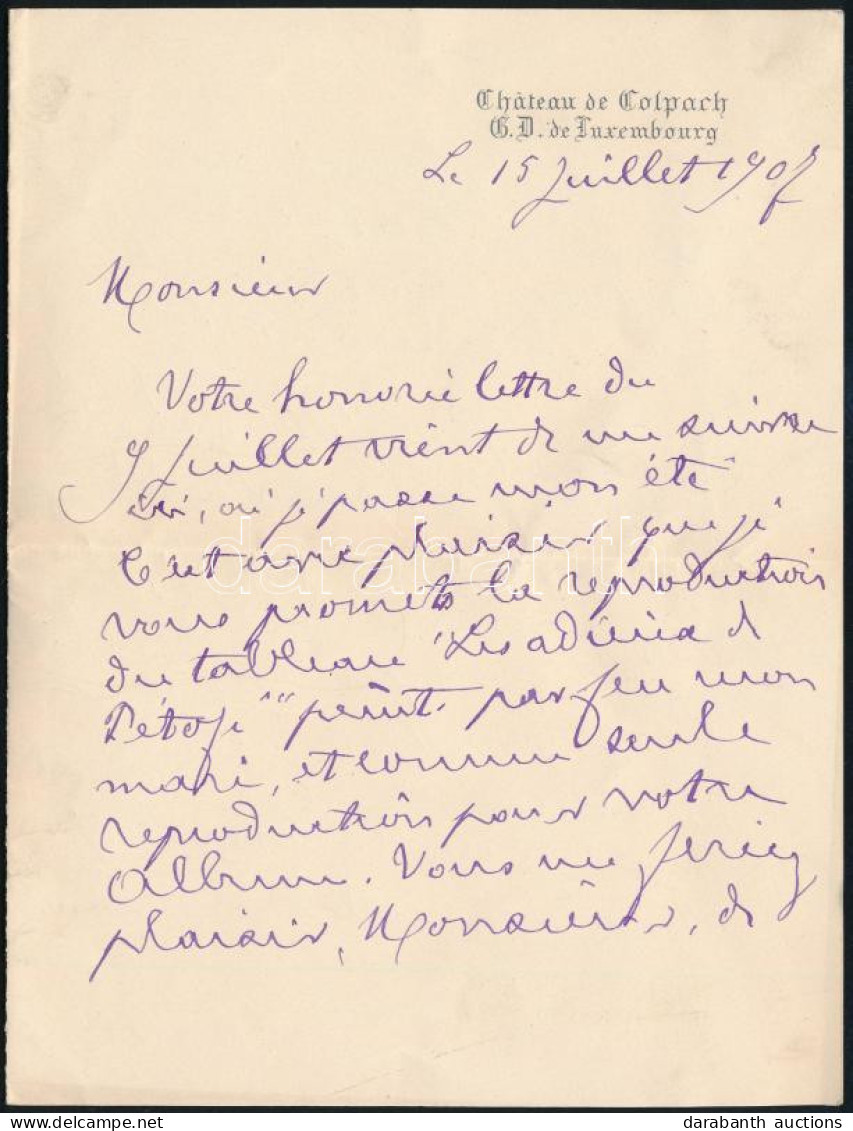 Château de Colpach
G. D. de Luxembourg
Le 15 Juillet 1907
Monsieur
Votre honorée lettre du
9 Juillet vient de me suivre
ici, où je passe mon été
C'est avec plaisir que je
vous promets la reproduction
du tableau "Les adieux de
Petofi" peint par feu mon
mari, et comme seule
reproduction pour votre
Album. Vous me feriez
plaisir, Monsieur, de
darabanth
darabanth auctions